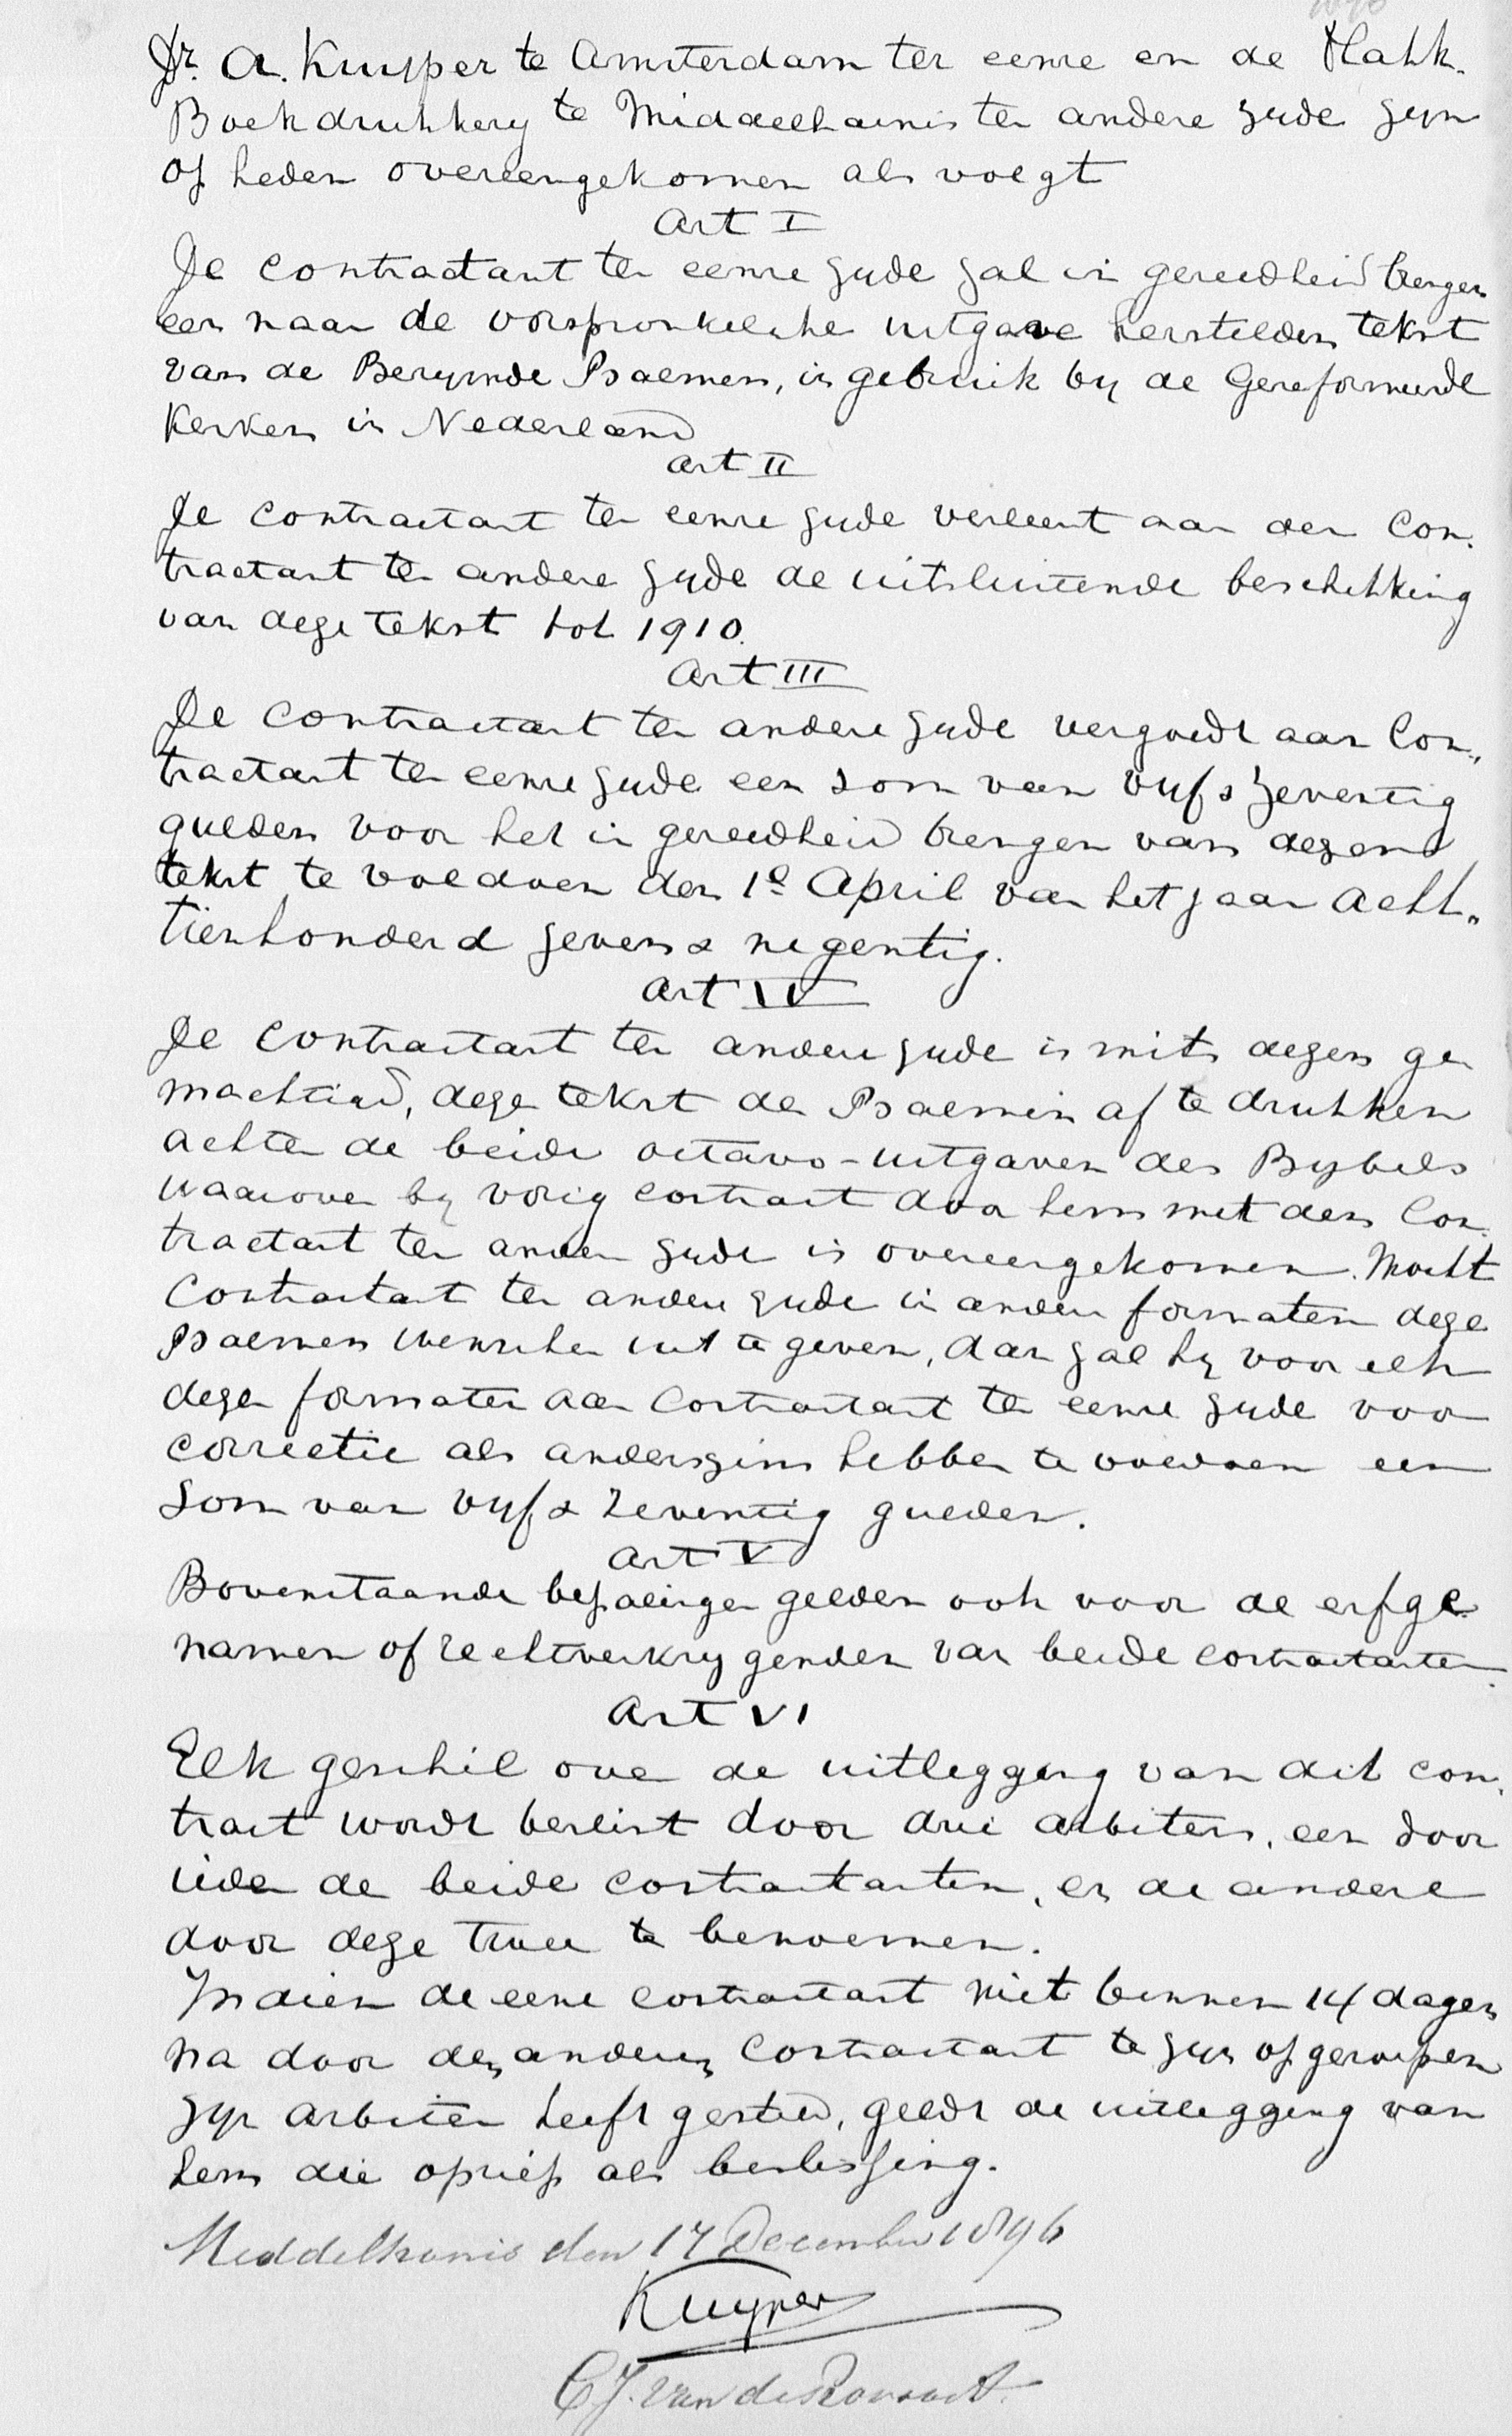 Dr. A. Kuyper te Amsterdam ter eenre en de Flakk.
Boekdrukkery te Middelharnis ter andere zyde zyn
op heden overeengekomen als volgt
Art I
De contractant ter eenre zyde zal in gereedheid brengen
een naar de oorspronkelyke uitgave herstelden tekst
van de Berymde Psalmen, in gebruik by de Gereformeerde
Kerken in Nederland
Art II
De contractant ter eenre zyde verleent aan den Con-
tractant ter andere zyde de uitsluitende beschikking
van deze tekst tot 1910.
Art III
De Contractant ter andere zyde vergoedt aan Con-
tractant ter eenre zyde een som van vyf & zeventig
gulden voor het in gereedheid brengen van dezen
tekst te voldoen den 1e April van het jaar acht-
tienhonderd zeven & negentig.
Art IV
De contractant ter andere zyde is mits dezen ge
machtigd, deze tekst der Psalmen af te drukken
achter de beide octavo-uitgaven des Bybels
waarover by vorig contract door hem met den Con-
tractant ter ander zyde is overeengekomen. Mocht
Contractant ter andere zyde in andere formaten deze
Psalmen wenschen uit te geven, dan zal hy voor elk
dezer formaten aan Contractant ter eenre zyde voor
correctie als anderszins hebben te voldoen een
som van vyf & zeventig gulden.
Art V
Bovenstaande bepalingen gelden ook voor de erfge-
namen of rechtverkrygenden van beide contractanten.
Art VI
Elk geschil over de uitlegging van dit con-
tract wordt beslist door drie arbiters, een door
ieder de beide contractanten, en de andere
door deze twee te benoemen.
Indien de eene contractant niet binnen 14 dagen
na door den anderen Contractant te zyn opgeroepen
zyn arbiter heeft gesteld, geldt de uitlegging van
hem die opriep als beslissing.
Middelharnis den 17 December 1896
Kuyper
C J. van de